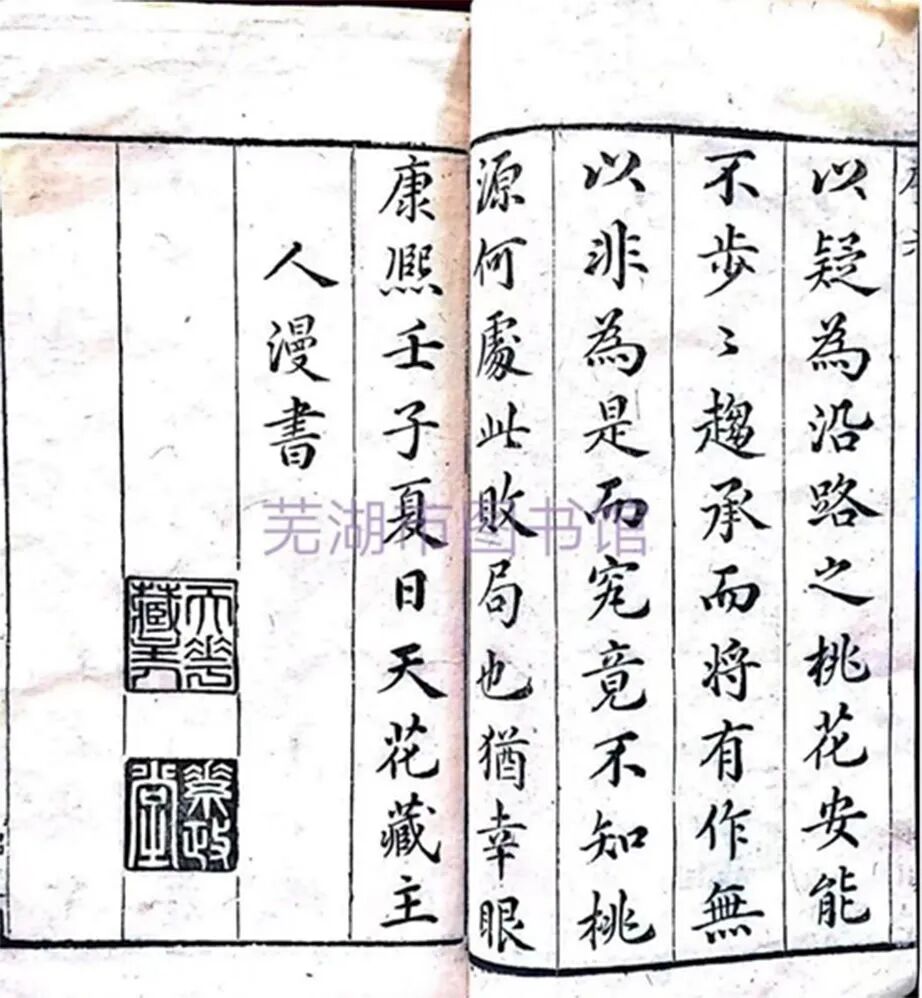 以疑為沿路之桃花安能
不步〻趨承而将有作無
以非為是而究竟不知桃
源何處此敗局也猶幸眼
康熙壬子夏日天花藏主
人漫書
天花
藏主
素政
堂
芜湖市图书馆